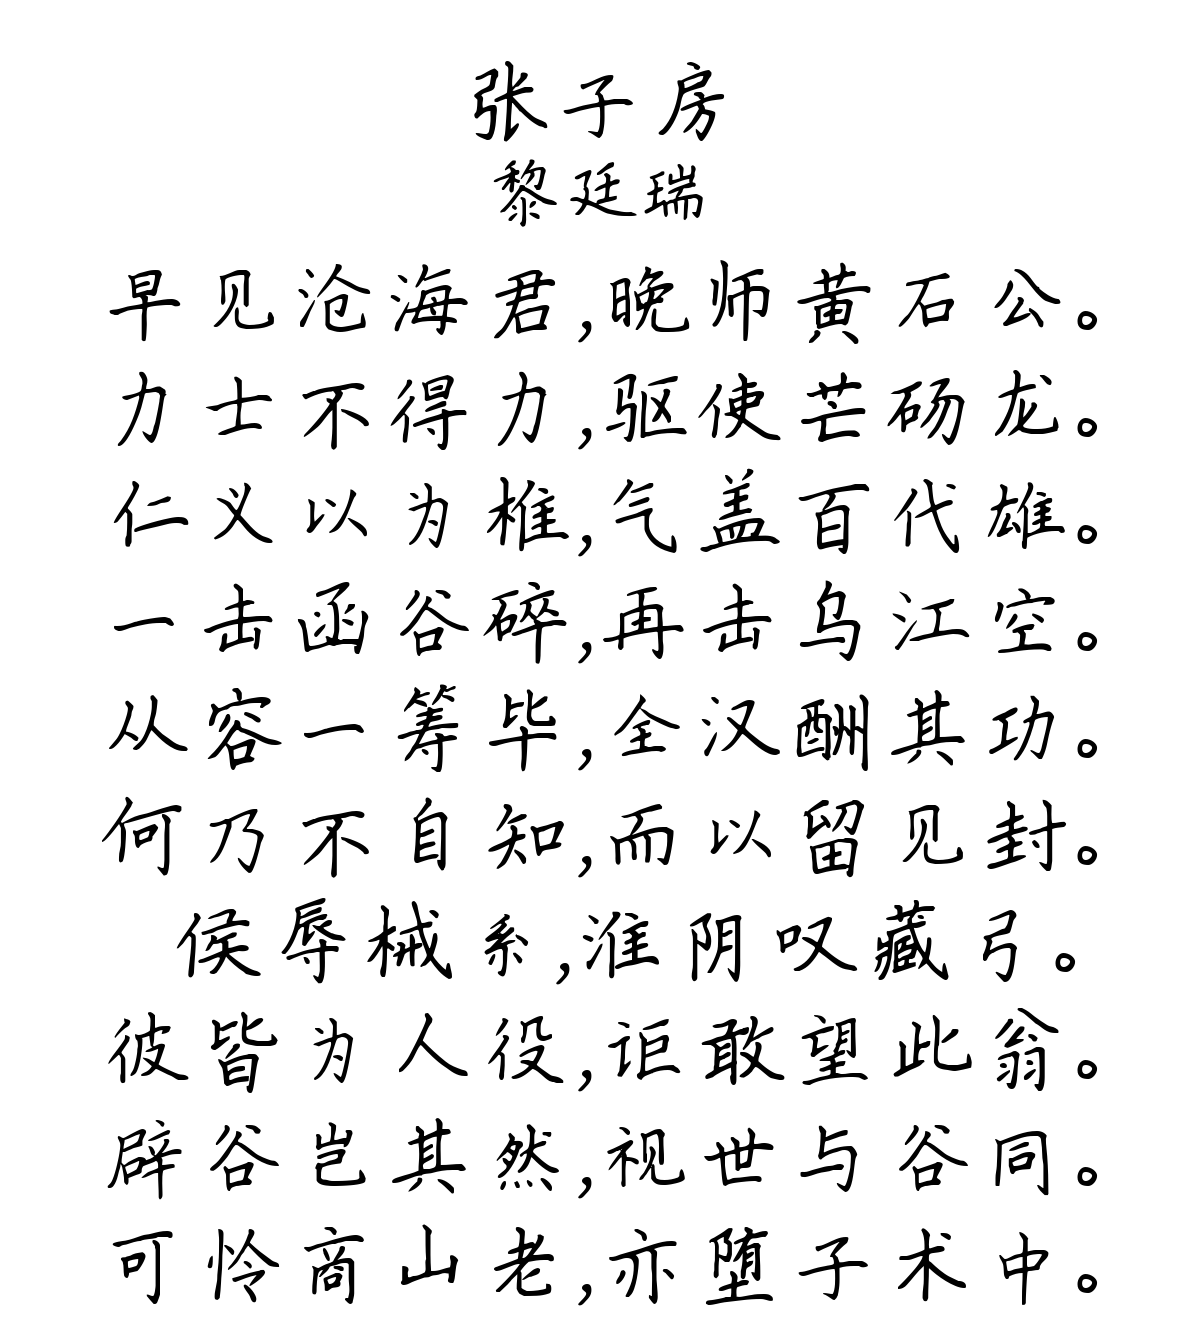 张子房
黎廷瑞
早见沧海君,晚师黄石公。
力士不得力,驱使芒砀龙。
仁义以为椎,气盖百代雄。
一击函谷碎,再击乌江空。
从容一筹毕,全汉酬其功。
何乃不自知,而以留见封。
侯辱械系,淮阴叹藏弓。
彼皆为人役,讵敢望此翁。
辟谷岂其然,视世与谷同。
可怜商山老,亦堕子术中。